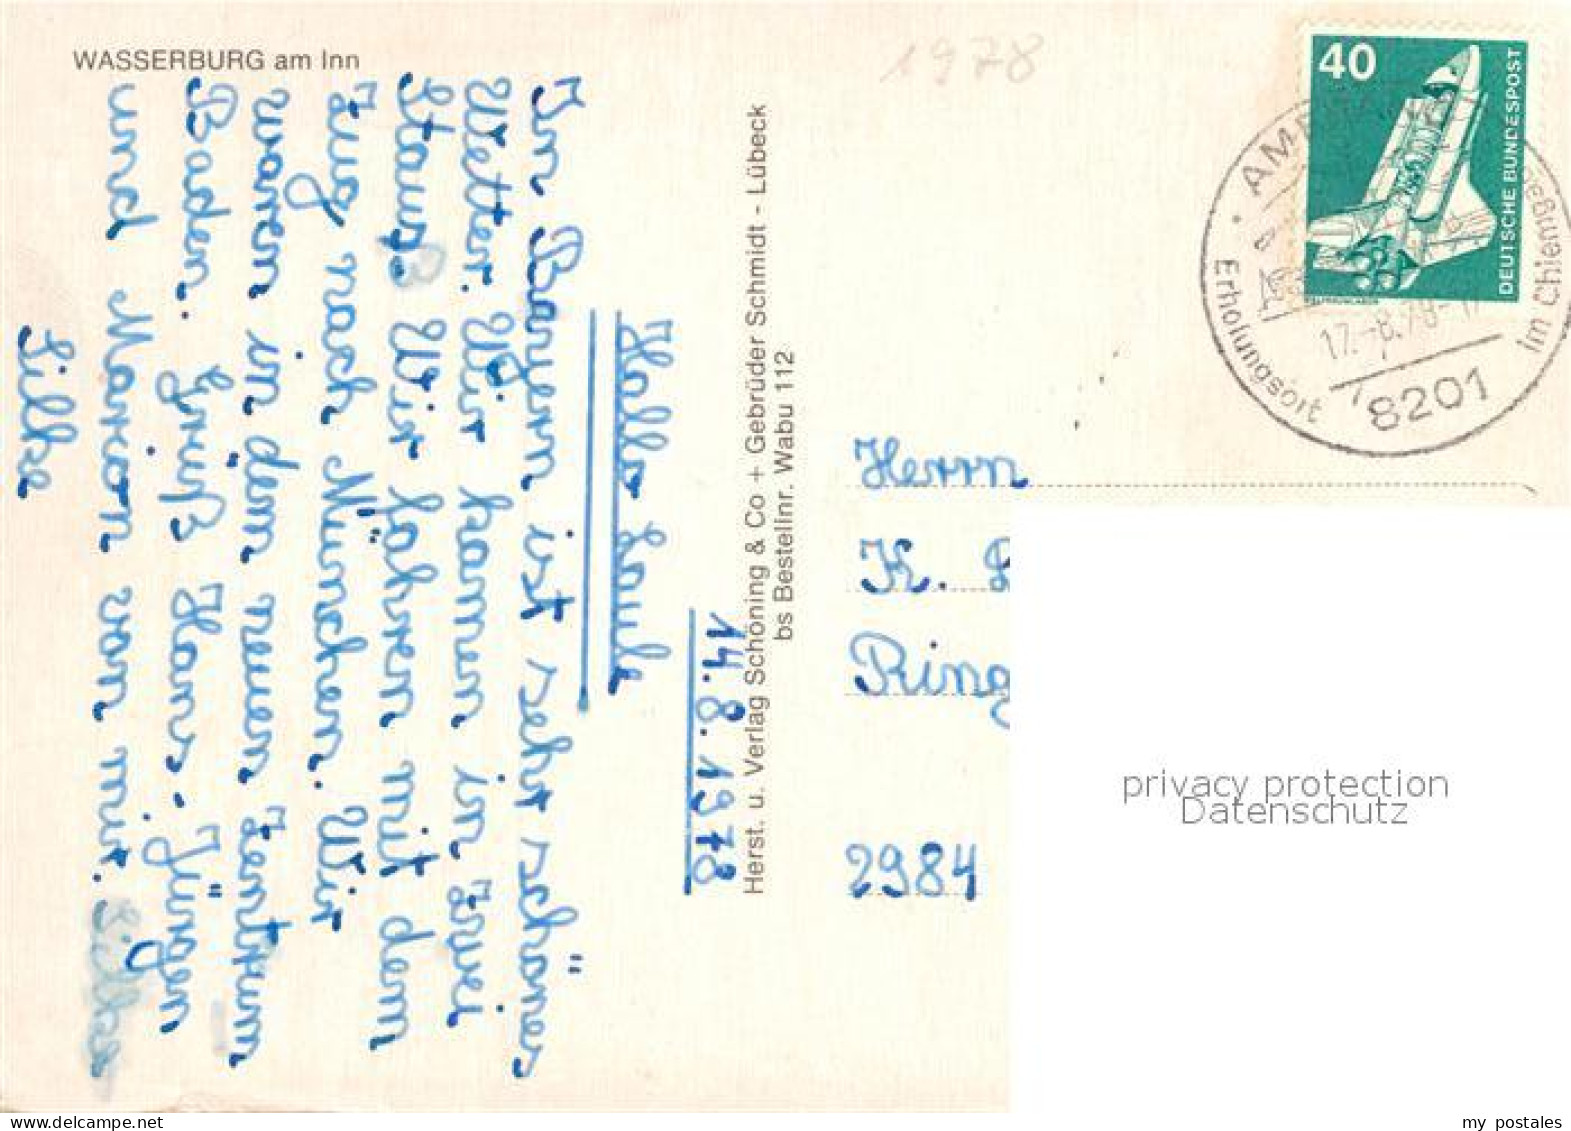 WASSERBURG am Inn
1978
14.8.1978
Hallo Laule
In Bayern ist sehr schönes
Wetter. Wir kamen in zwei
Staus. Wir fahren mit dem
Zug nach München. Wir
waren in dem neuen Zentrum
Baden. Gruß Hans-Jürgen
und Marion von mir. Silke
Silke
Herst. u. Verlag Schöning & Co + Gebrüder Schmidt - Lübeck
bs Bestellnr. Wabu 112
40
DEUTSCHE BUNDESPOST
Erholungsort
im Chiemgau
17.-8.78-
8201
Herrn
K.
Ring
2984
privacy protection
Datenschutz
www.delcampe.net
my_postales